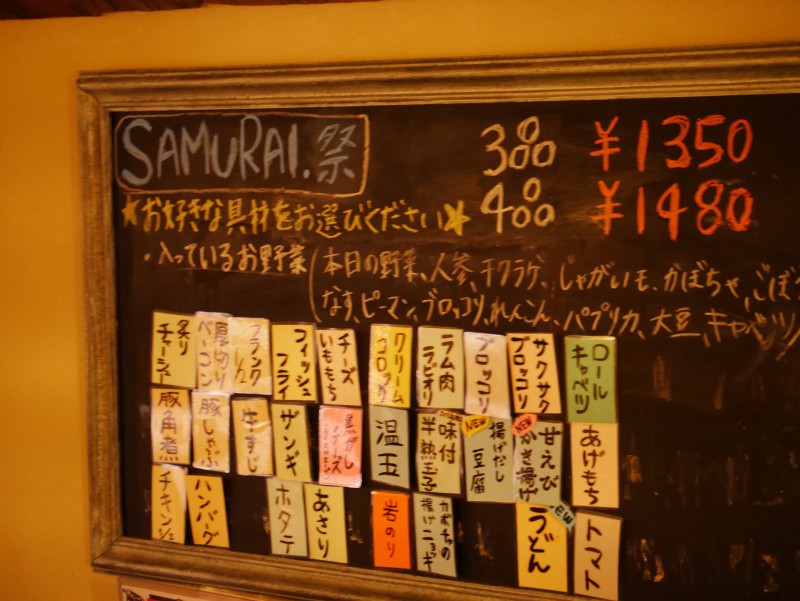 SAMURAI.祭
3品 ¥1350
4品 ¥1480
★お好きな具材をお選びください★
・入っているお野菜（本日の野菜、人参、キクラゲ、じゃがいも、かぼちゃ、ごぼう
なす、ピーマン、ブロッコリ、れんこん、パプリカ、大豆、キャベツ
炙りチャーシュー
厚切りベーコン
フランク 1/2
フィッシュフライ
チーズいももち
クリームコロッケ
ラム肉ラビオリ
ブロッコリ
サクサクブロッコリ
ロールキャベツ
豚角煮
豚しゃぶ
牛すじ
ザンギ
焦がしチーズ
温玉
味付半熟玉子
NEW
揚げだし豆腐
NEW
甘えびかき揚げ
あげもち
チキン
ハンバーグ
ホタテ
あさり
岩のり
カボチャの揚げニョッキ
NEW
うどん
トマト